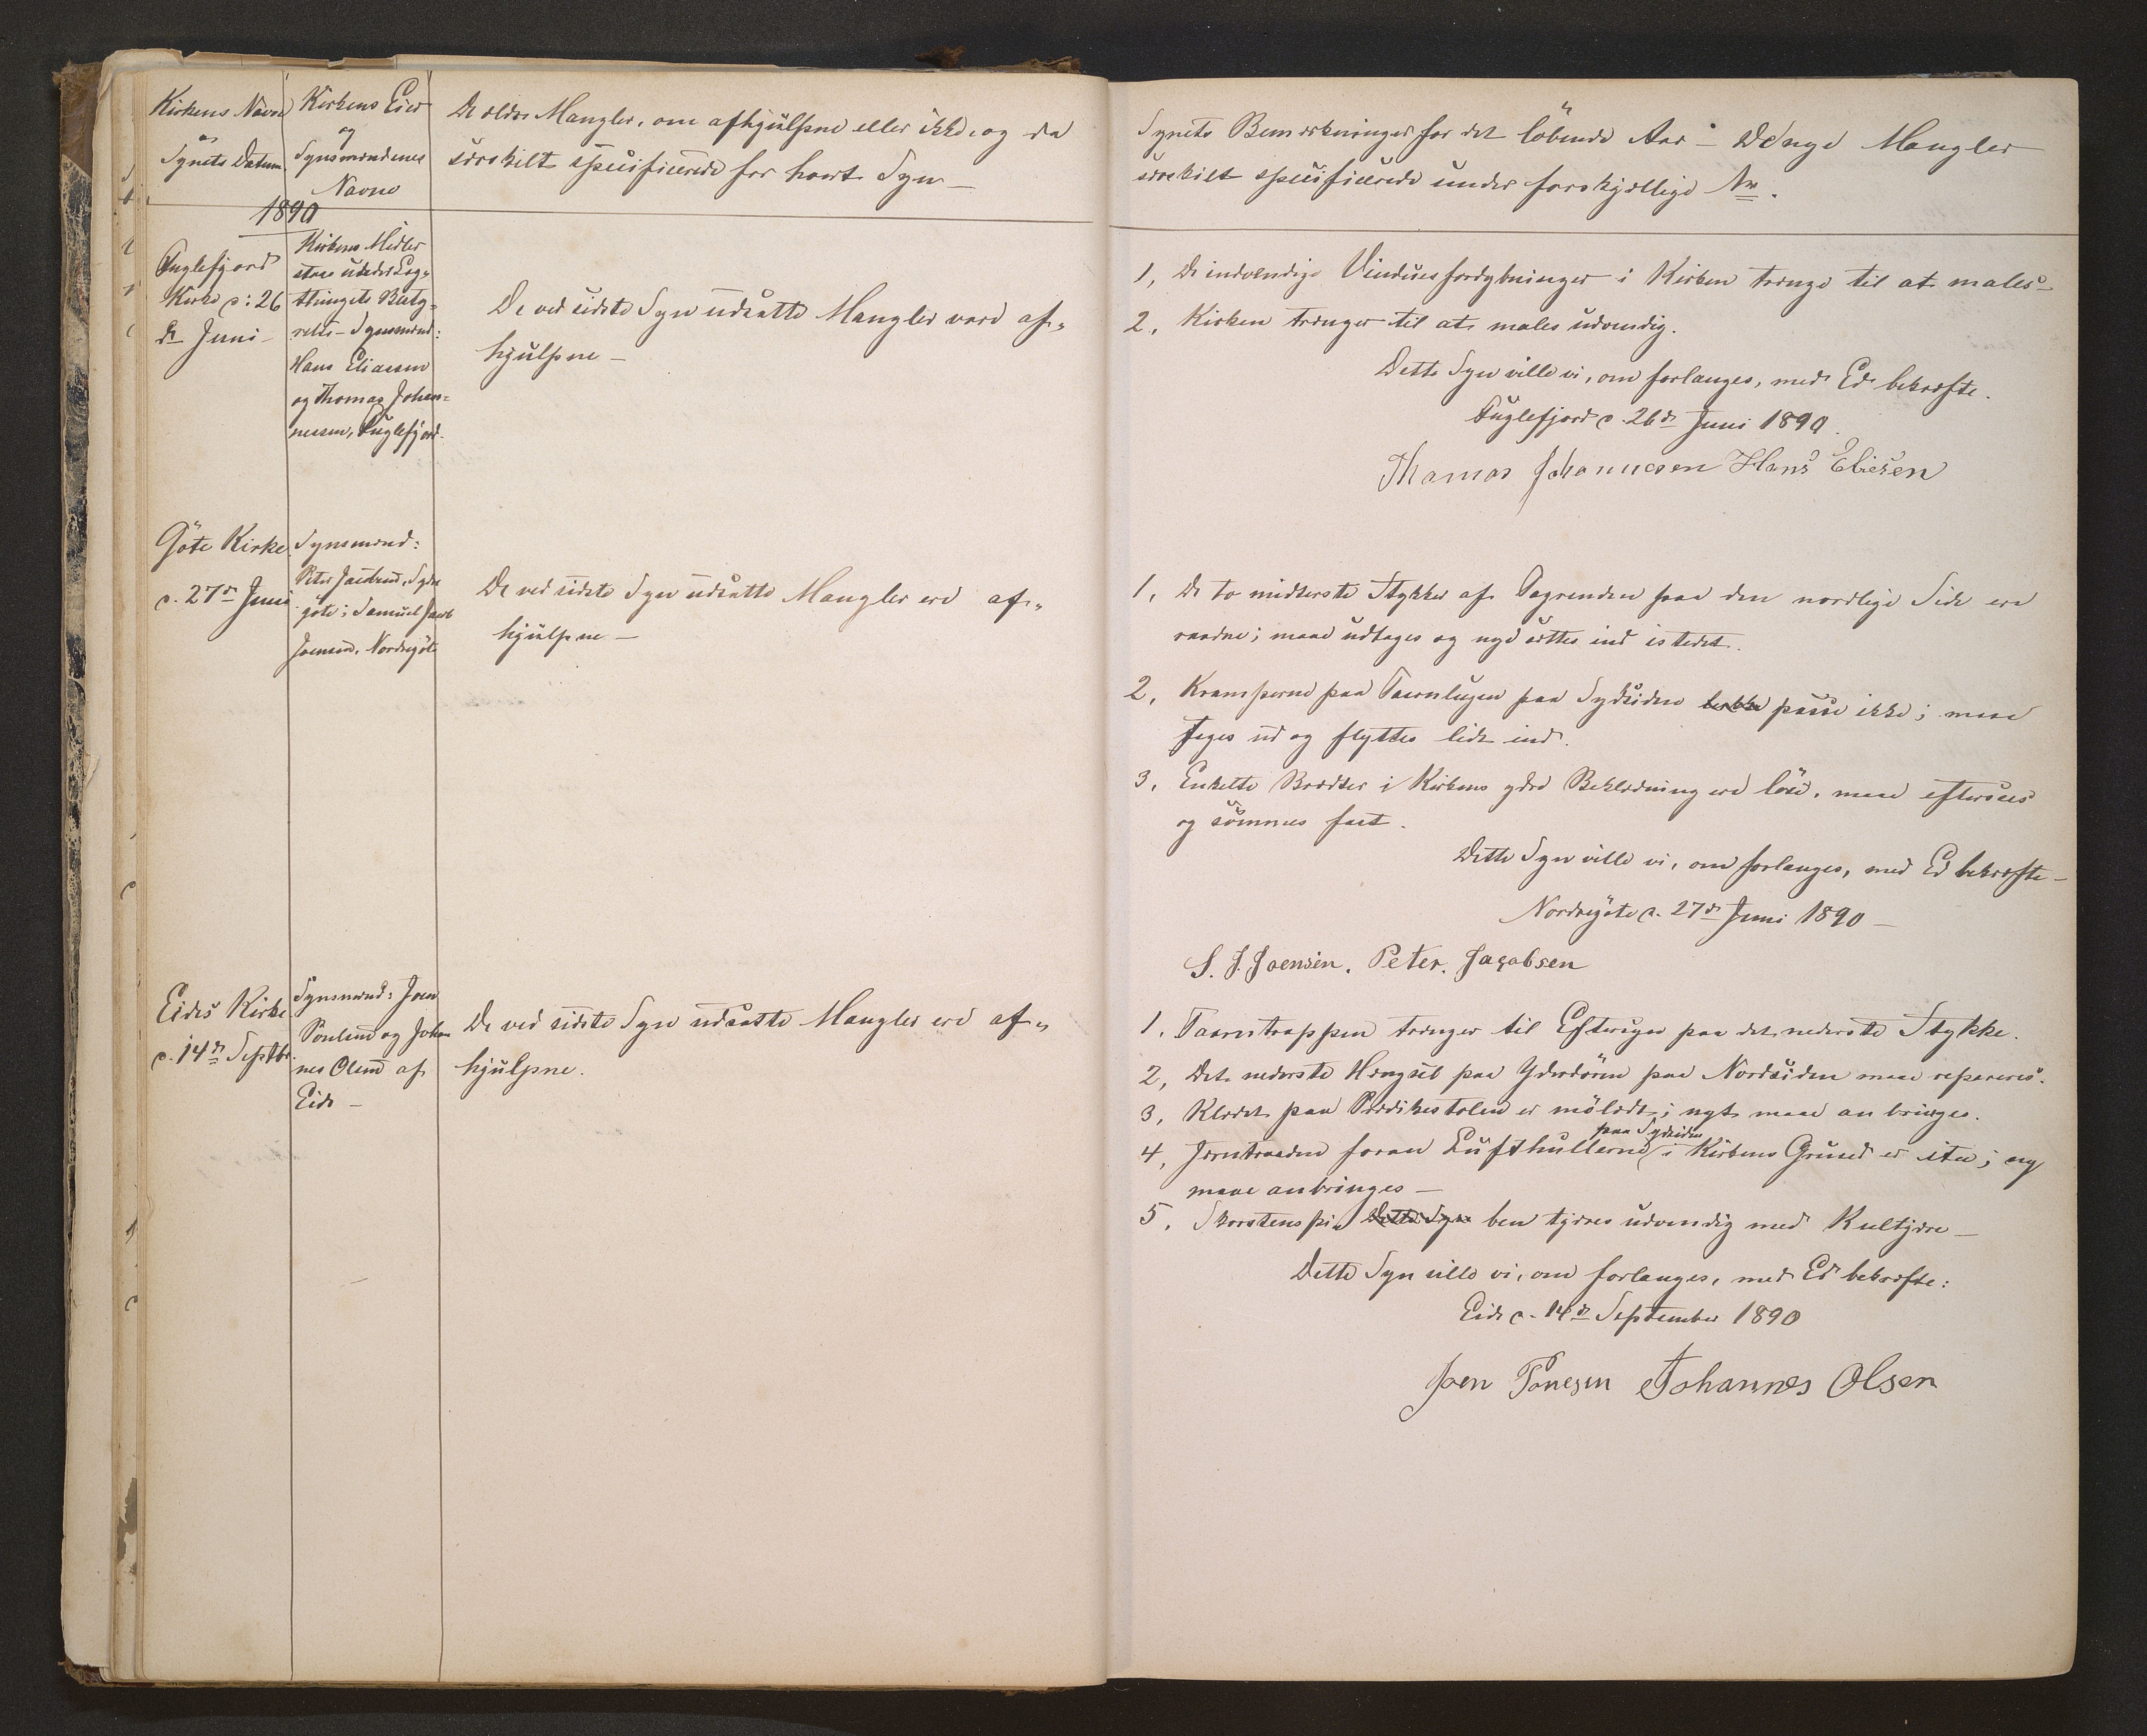 Kirkens Navn
og
Synets Datum.
Kirkens Eier
og
Synsmændenes
Navne
De ældre Mangler, om afhjülpne eller ikke, og da
særskilt specificerede for hvert Syn —
1890
Fuglefjord
Kirke d: 26
de Juni —
Kirkens Midler
staae under Lag-
thingets Besty-
relse — Synsmænd:
Hans Eliassen
og Thomas Johan-
nessen, Fuglefjord.
De ved sidste Syn udsatte Mangler vare af-
hjülpne —
Göte Kirke
d. 27de Juni
Synsmænd:
Peter Jacobsen, Sydre
göte; Samuel Jacob
Joensen, Nordregöte
De ved sidste Syn udsatte Mangler ere af-
hjülpne —
Eides Kirke
d. 14de Septbr.
Synsmænd: Joen
Poulsen og Johan
nes Olsen af
Eide —
De ved sidste Syn udsatte Mangler ere af-
hjülpne.
Synets Bemærkninger for det löbende Aar — De nye Mangler
særskilt specificerede under forskjællige Nr.
1, De indvendige Vinduesfordybninger i Kirken trænge til at males —
2, Kirken trænger til at males udvendig.
Dette Syn ville vi, om forlanges, med Ed bekræfte.
Fuglefjord d. 26de Juni 1890.
Thomas Johannesen Hans Eliesen
1, De to midterste Stykker af Tagrenden paa den nordlige Side ere
raadne; maae udtages og nye sættes ind istedet.
2, Kramperne paa Taarnlugen paa Sydsiden passe ikke; maae
tages ud og flyttes lidt ind.
3, Enkelte Brædder i Kirkens ydre Beklædning ere löse, maae eftersees
og sömmes fast.
Dette Syn ville vi, om forlanges, med Ed bekræfte —
Nordregöte d. 27de Juni 1890 —
S. J. Joensen. Peter. Jacobsen
1, Taarntrappen trænger til Eftersyn paa det nederste Stykke.
2, Det nederste Hængsel paa Yderdören paa Nordsiden maae repareres.
3, Klædet paa Prædikestolen er mölædt; nyt maae anbringes.
paa Sydsiden
4, Jerntraaden foran Lufthullerne i Kirkens Grund er itu; ny
maae anbringes —
5, Skorstenspi Dette Syn ben tjæres udvendig med Kultjære —
Dette Syn ville vi, om forlanges, med Ed bekræfte:
Eide d. 14de September 1890
Joen Johannes Olsen